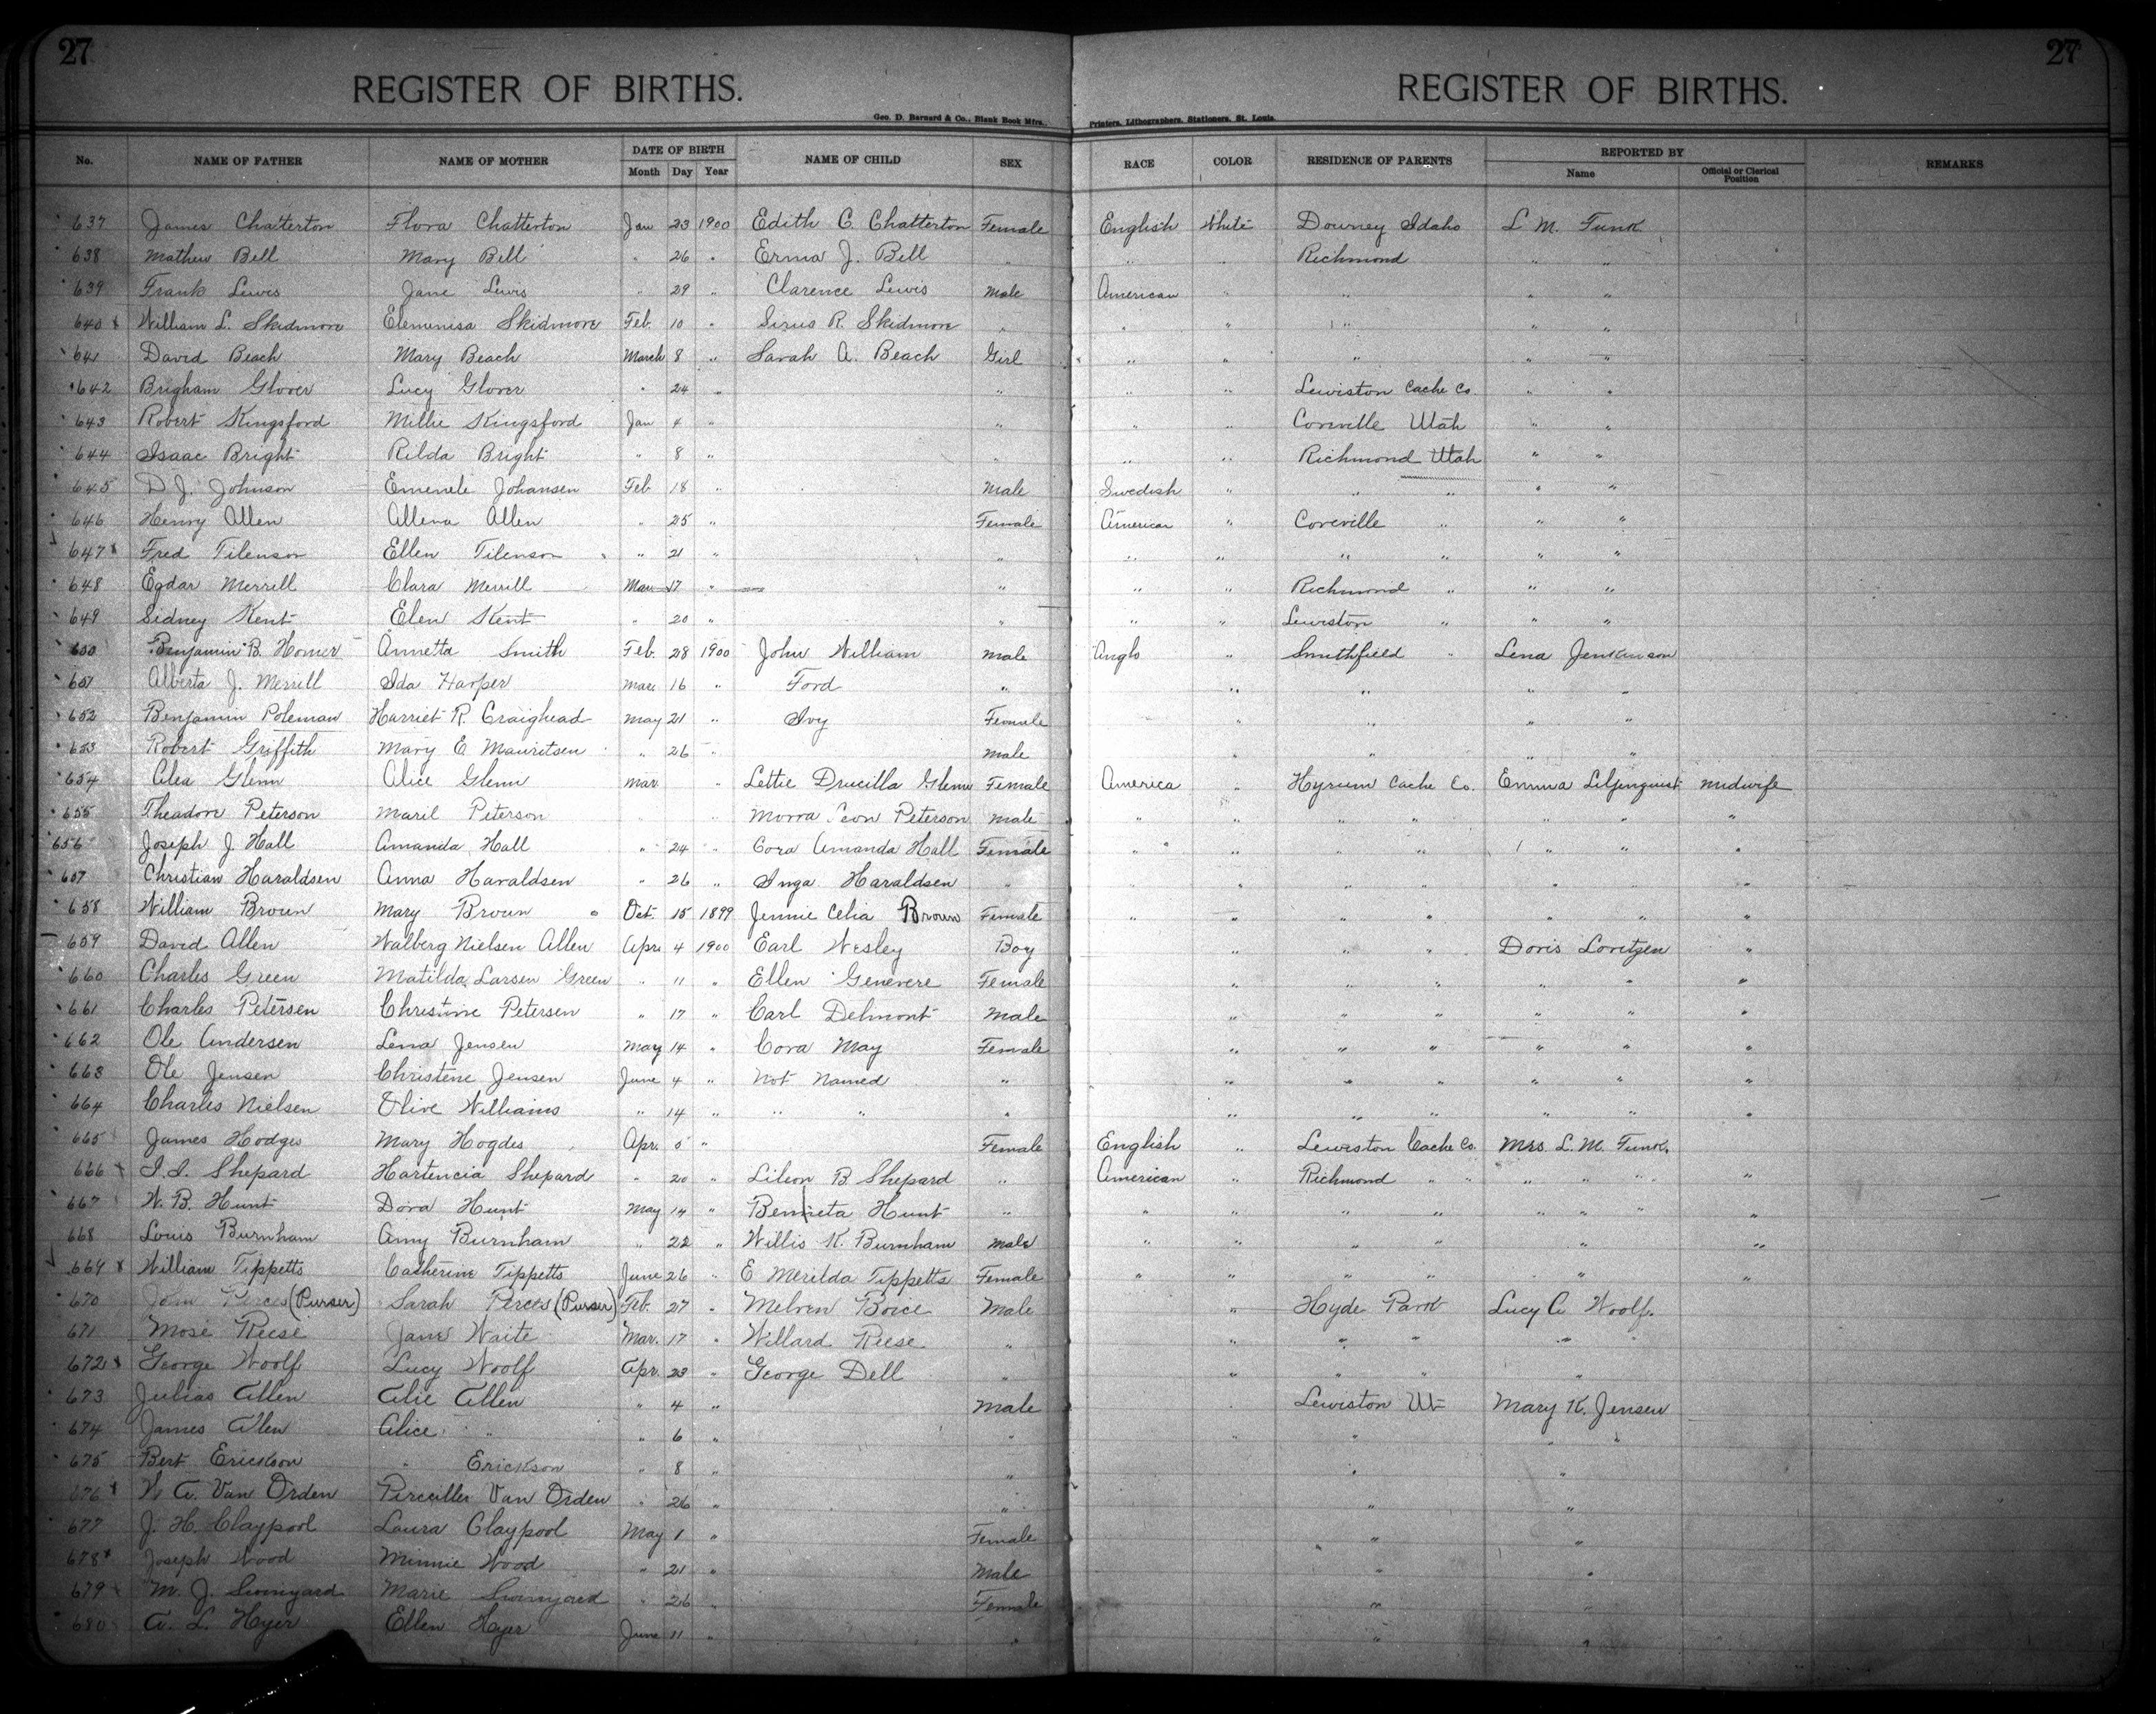 27 27
REGISTER OF BIRTHS. REGISTER OF BIRTHS.
Geo. D. Barnard & Co., Blank Book Mfrs., Printers, Lithographers, Stationers, St. Louis.
No. NAME OF FATHER NAME OF MOTHER DATE OF BIRTH NAME OF CHILD SEX RACE COLOR RESIDENCE OF PARENTS REPORTED BY REMARKS
Month Day Year Name Official or Clerical Position
637 James Chatterton Flora Chatterton Jan 23 1900 Edith C. Chatterton Female English White Downey Idaho L M. Funk
638 Mathew Bell Mary Bell " 26 " Erma J. Bell " " " Richmond " "
639 Frank Lewis Jane Lewis " 29 " Clarence Lewis Male American " " " "
640 x William L. Skidmore Elemenisa Skidmore Feb. 10 " Sirus R. Skidmore " " " " " "
641 David Beach Mary Beach March 8 " Sarah A. Beach Girl " " " " "
642 Brigham Glover Lucy Glover " 24 " " " " Lewiston Cache Co. " "
643 Robert Kingsford Millie Kingsford Jan 4 " " " " Coveville Utah " "
644 Isaac Bright Rilda Bright " 8 " " " " Richmond Utah " "
645 D J. Johnson Emenele Johansen Feb 18 " Male Swedish " " " " "
646 Henry Allen Allena Allen " 25 " Female American " Coveville " " "
647 x Fred Tilenson Ellen Tilenson " 21 " " " " " " " "
648 Egdar Merrill Clara Merrill Mar 17 " " " " Richmond " " "
649 Sidney Kent Elen Kent " 20 " " " " Lewiston " " "
650 Benjamin B. Homer Annetta Smith Feb. 28 1900 John William Male Anglo " Smithfield " Lena Jenkinson
651 Alberta J. Merrill Ida Harper Mar. 16 " Ford " " " " "
652 Benjamin Poleman Harriet R. Craighead May 21 " Ivy Female " " " "
653 Robert Griffith Mary E Mauritsen " 26 " Male " " " "
654 Alea Glenn Alice Glenn Mar " Lettie Drucilla Glenn Female America " Hyrum Cache Co. Emma Liljenquist Midwife
655 Theadore Peterson Maril Peterson " " Morra Leon Peterson Male " " " " " " "
656 Joseph J. Hall Amanda Hall " 24 " Cora Amanda Hall Female " " " " " " "
657 Christian Haraldsen Anna Haraldsen " 26 " Inga Haraldsen " " " " " " " "
658 William Brown Mary Brown Oct. 15 1899 Jennie Celia Brown Female " " " " " " "
659 David Allen Walberg Nielsen Allen Apr. 4 1900 Earl Wesley Boy " " " Doris Loretzen "
660 Charles Green Matilda Larsen Green " 11 " Ellen Genevere Female " " " " " "
661 Charles Petersen Christine Petersen " 17 " Carl Delmont Male " " " " " "
662 Ole Andersen Lena Jensen May 14 " Cora May Female " " " " " "
663 Ole Jensen Christene Jensen June 4 " Not Named " " " " " " "
664 Charles Nielsen Olive Williams " 14 " " " " " " " " " "
665 James Hodges Mary Hogdes Apr. 5 " Female English " Lewiston Cache Co. Mrs. L. M. Funk.
666 x I. I. Shepard Hartencia Shepard " 20 " Lileon B Shepard " American " Richmond " " " " " "
667 W. B. Hunt Dora Hunt May 14 " Benneta Hunt " " " " " " " " "
668 Louis Burnham Amy Burnham " 22 " Willis K. Burnham Male " " " " " "
669 x William Tippetts Catherine Tippetts June 26 " E Merilda Tippetts Female " " " " " "
670 John Perces (Purser) Sarah Perces (Purser) Feb. 27 " Melven Boice Male " Hyde Park Lucy A Woolf.
671 Mose Reese Jane Waite Mar. 17 " Willard Reese " " " " "
672 x George Woolf Lucy Woolf Apr. 23 " George Dell " " " " "
673 Julias Allen Alie Allen " 4 " Male " Lewiston Ut Mary K. Jensen
674 James Allen Alice " " 6 " " " " " "
675 Bert Erickson " Erickson " 8 " " " "
676 x W A. Van Orden Percilla Van Orden " 26 " " " "
677 J. H. Claypool Laura Claypool May 1 " Female " "
678 x Joseph Wood Minnie Wood " 21 " Male " "
679 x M. J. Swinyard Marie Swinyard " 26 " Female " "
680 A. L. Hyer Ellen Hyer June 11 " " " "